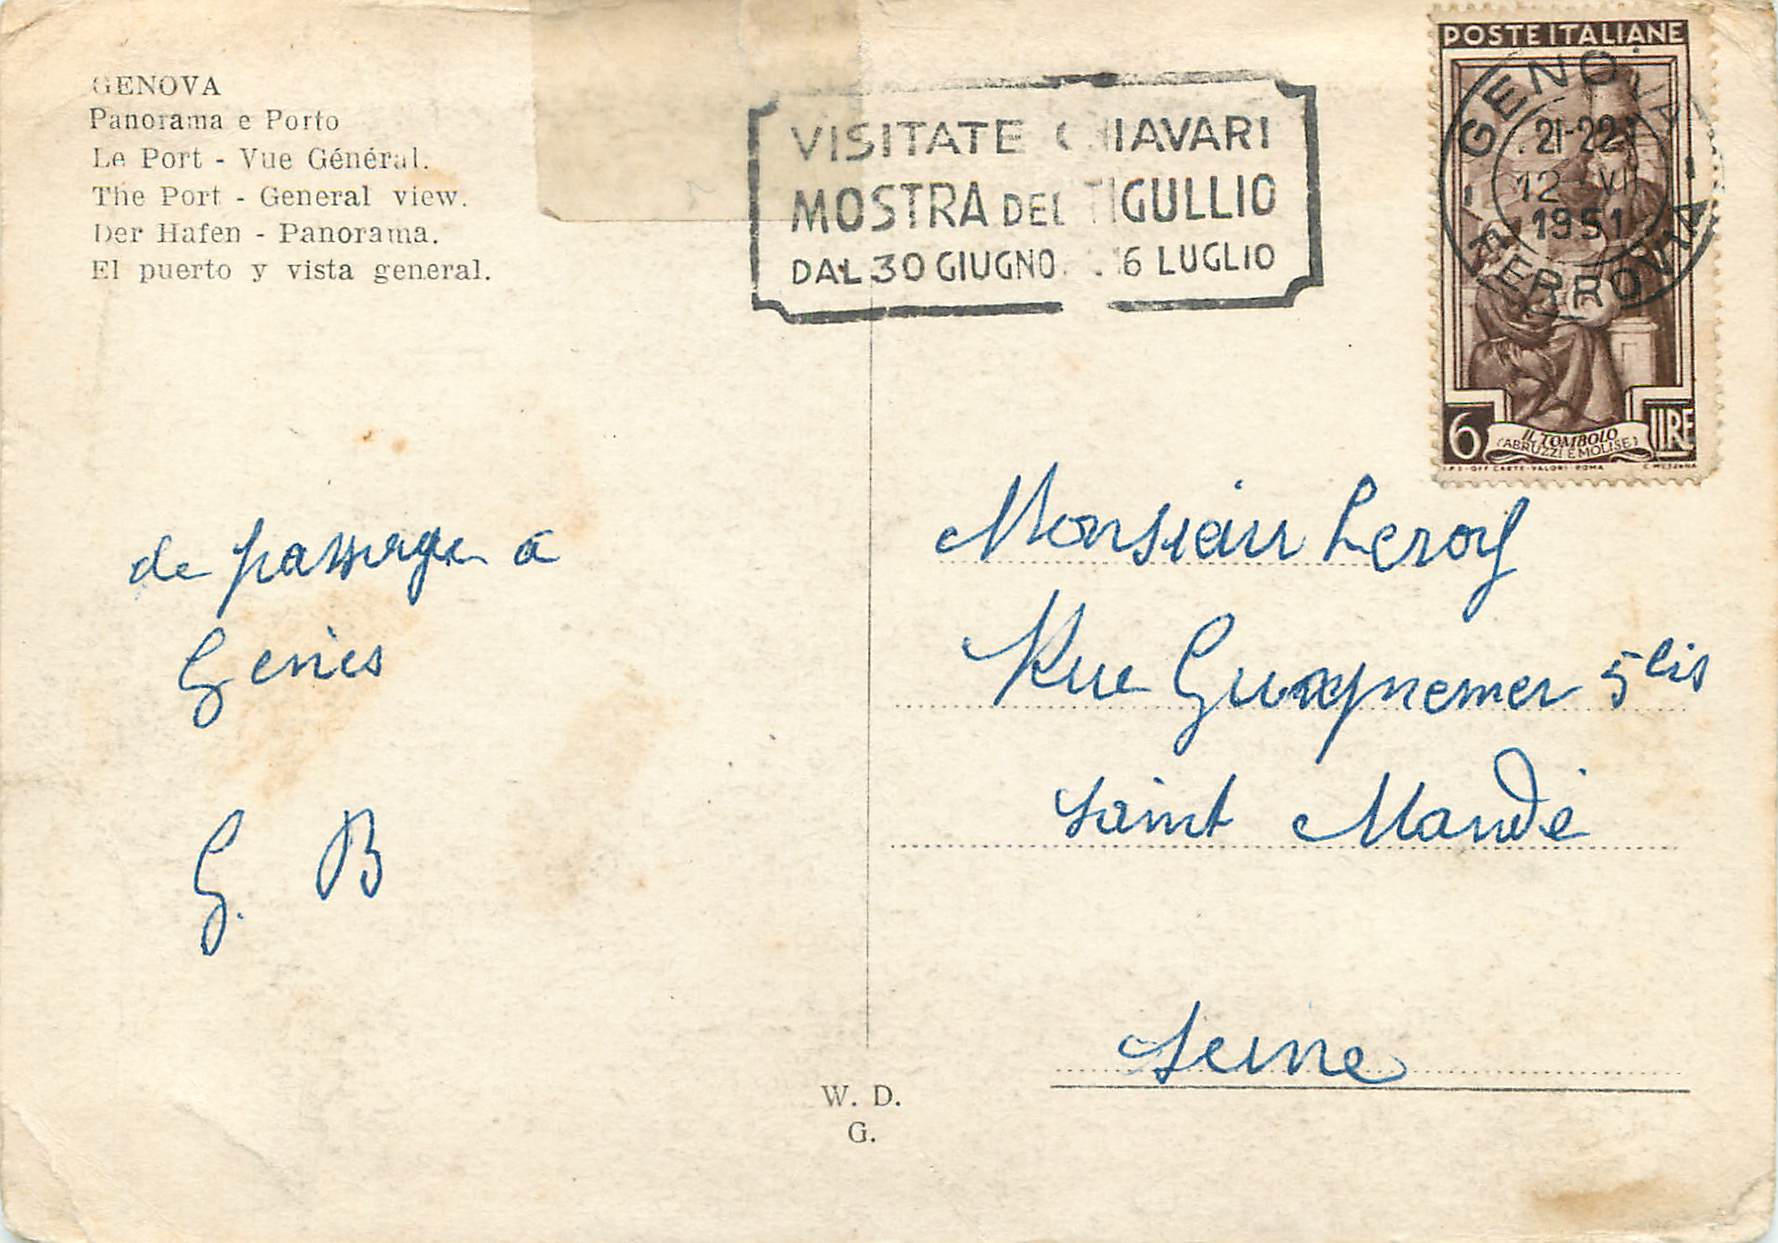 GENOVA
Panorama e Porto
Le Port - Vue Général.
The Port - General view.
Der Hafen - Panorama.
El puerto y vista general.
VISITATE CHIAVARI
MOSTRA DEL TIGULLIO
DAL 30 GIUGNO 16 LUGLIO
POSTE ITALIANE
GENOVA
21-22
12 VII
1951
FERROVIA
6 LIRE
IL TOMBOLO
(ABRUZZI E MOLISE)
I.P.S.-OFF. CARTE-VALORI-ROMA C. MEZZANA
de passage à
Gênes
G. B
Monsieur Leroy
Rue Guynemer 5bis
Saint Mandé
Seine
W. D.
G.